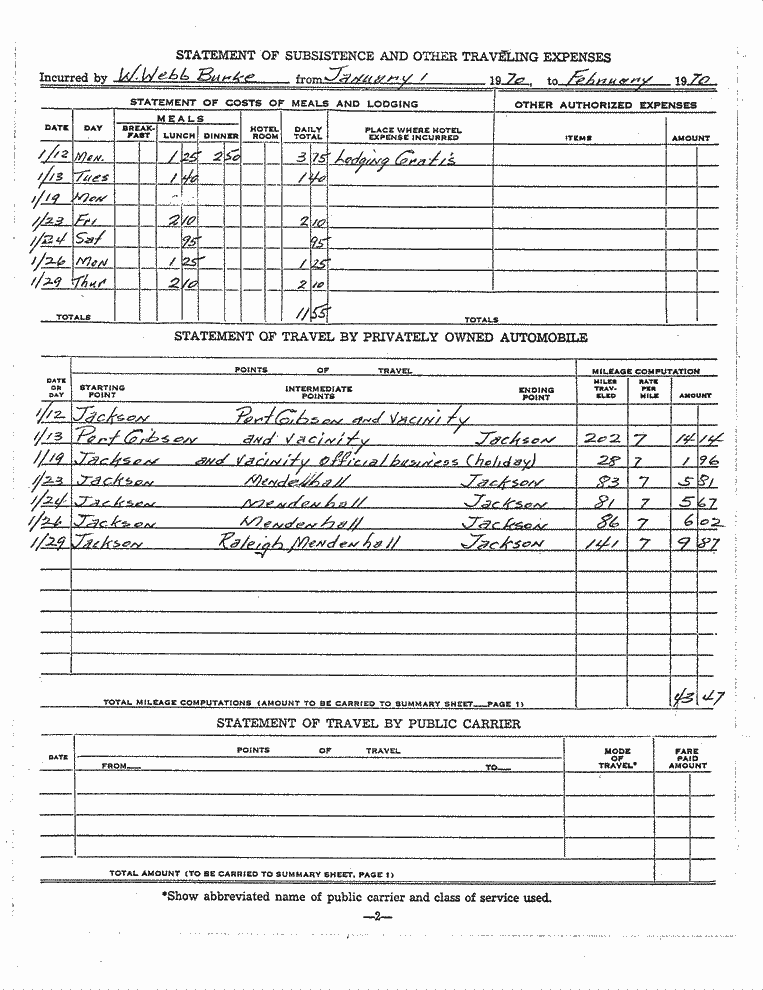 STATEMENT OF SUBSISTENCE AND OTHER TRAVELING EXPENSES
Incurred by W. Webb Burke from January 1 1970, to February 1970
STATEMENT OF COSTS OF MEALS AND LODGING OTHER AUTHORIZED EXPENSES
MEALS
DATE DAY BREAK-FAST LUNCH DINNER HOTEL ROOM DAILY TOTAL PLACE WHERE HOTEL EXPENSE INCURRED ITEMS AMOUNT
1/12 Mon. 1 25 2 50 3 75 Lodging Gratis
1/13 Tues 1 40 1 40
1/19 Mon - -
1/23 Fri 2 10 2 10
1/24 Sat 95 95
1/26 Mon 1 25 1 25
1/29 Thur 2 10 2 10
TOTALS 11 55 TOTALS
STATEMENT OF TRAVEL BY PRIVATELY OWNED AUTOMOBILE
POINTS OF TRAVEL MILEAGE COMPUTATION
DATE OR DAY STARTING POINT INTERMEDIATE POINTS ENDING POINT MILES TRAV-ELED RATE PER MILE AMOUNT
1/12 Jackson Port Gibson and vacinity
1/13 Port Gibson and vacinity Jackson 202 7 14 14
1/19 Jackson and vacinity official business (holiday) 28 7 1 96
1/23 Jackson Mendenhall Jackson 83 7 5 81
1/24 Jackson Mendenhall Jackson 81 7 5 67
1/26 Jackson Mendenhall Jackson 86 7 6 02
1/29 Jackson Raleigh Mendenhall Jackson 141 7 9 87
TOTAL MILEAGE COMPUTATIONS (AMOUNT TO BE CARRIED TO SUMMARY SHEET—PAGE 1) 43 47
STATEMENT OF TRAVEL BY PUBLIC CARRIER
DATE POINTS OF TRAVEL MODE OF TRAVEL* FARE PAID AMOUNT
FROM— TO—
TOTAL AMOUNT (TO BE CARRIED TO SUMMARY SHEET, PAGE 1)
*Show abbreviated name of public carrier and class of service used.
—2—